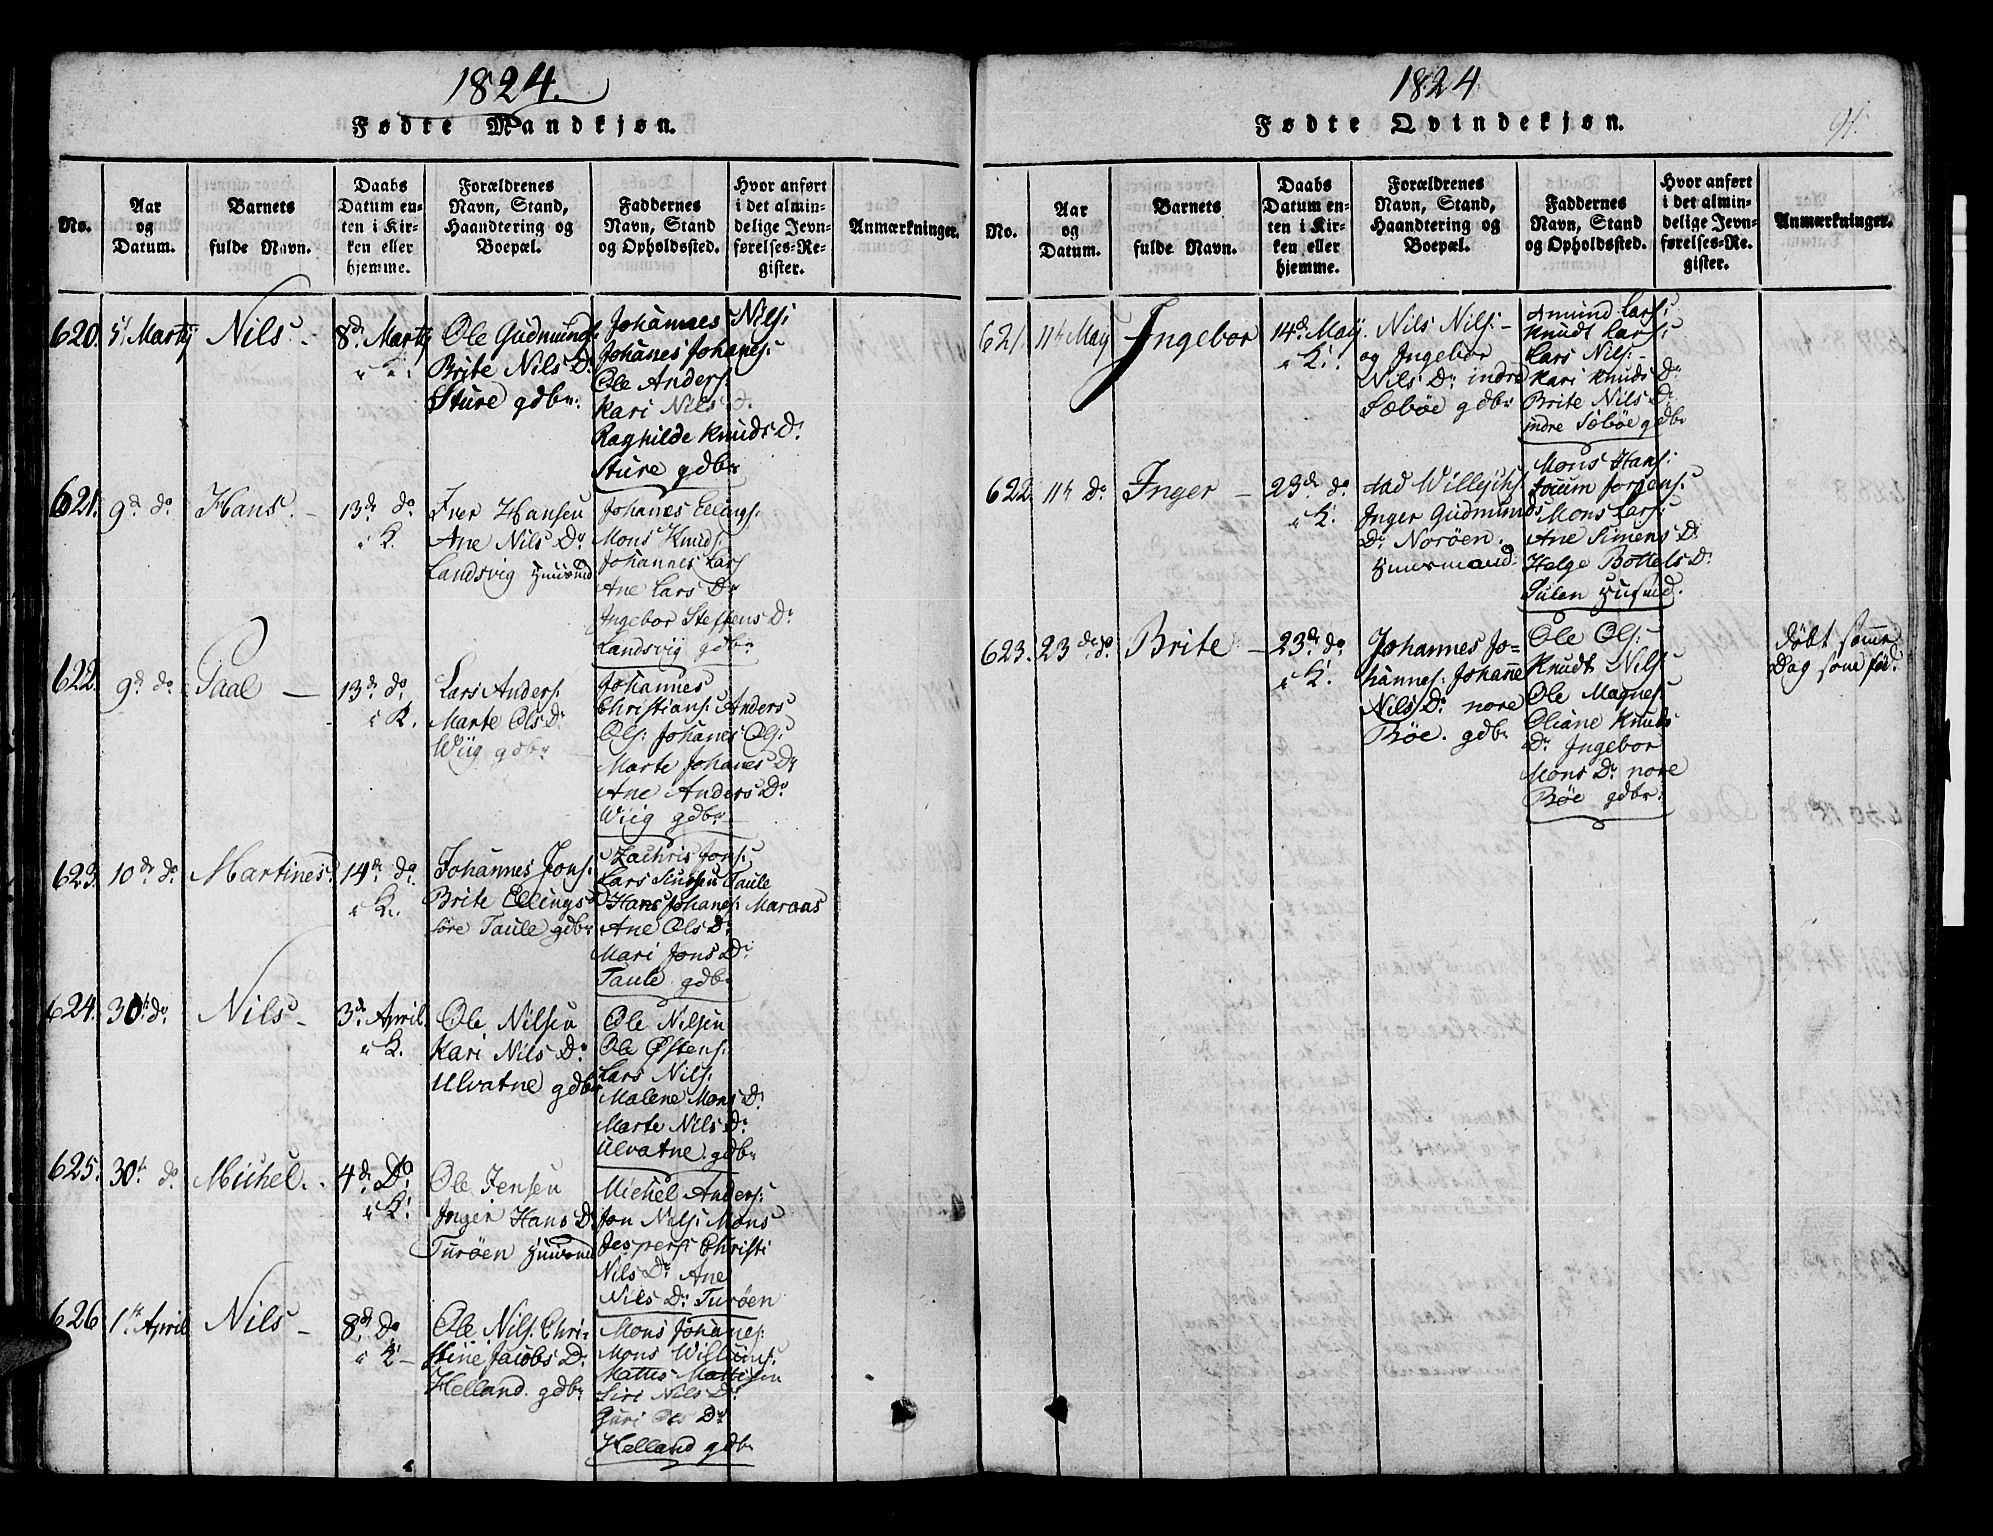 1824.
Fødte Mandkjøn.
No.
Aar
og
Datum.
Barnets
fulde Navn.
Daabs
Datum en-
ten i Kir-
ken eller
hjemme.
Forældrenes
Navn, Stand,
Haandtering og
Boepæl.
Faddernes
Navn, Stand
og Opholdssted.
Hvor anført
i det almin-
delige Jevn-
førelses-Re-
gister.
Anmærkninger.
620. 5t Martij Nils. 8de Martij
i K.
Ole Gudmunds:
Brite Nils Dr
Sture gdbr:
Johannes Nils:
Johanes Johanes:
Ole Anders:
Kari Nils Dr
Raghilde Knuds Dr
Sture gdbr
621. 9de do Hans. 13de do
i K.
Iver Hansen
Ane Nils Dr
Landsvig Huusmd
Johanes Ellings:
Mons Knuds
Johannes Lars
Ane Lars Dr
Ingebor Steffens Dr
Landsvig gdbr
622. 9de do Paal 13de do
i K.
Lars Anders:
Marte Ols Dr
Wiig gdbr
Johannes
Christians: Anders
Ols: Johanes Ols:
Marte Johanes Dr
Ane Anders Dr
Wiig gdbr
623. 10de do Martines. 14de do
i K.
Johannes Jons:
Brite Ellings Dr
søre Taule gdbr
Zachris Jons:
Lars Taule
Hans Johanes: Maraas
Ane Ols Dr
Mari Jons Dr
Taule gdbr
624. 30te do Nils 3de April
i K.
Ole Nilsen
Kari Nils Dr
Ulvatne gdbr
Ole Nilsen
Ole Østens:
Lars Nils:
Malene Mons Dr
Marte Nils Dr
Ulvatne gdbr
625. 30te do Michel. 4de Do
i K.
Ole Jensen
Inger Hans Dr
Turøen Huusmd
Michel Anders:
Jon Nils: Mons
Jespers: Christi
Nils Dr Ane
Nils Dr Turøen
626 1te April Nils 8de Do
i K
Ole Nils: Chri-
stine Jacobs Dr
Helland gdbr
Mons Johanes:
Mons Willums:
Mattis Mattisen
Siri Nils Dr
Guri Ols Dr
Helland gdbr
1824
Fødte Qvindekjøn.
91.
No.
Aar
og
Datum.
Barnets
fulde Navn.
Daabs
Datum en-
ten i Kir-
ken eller
hjemme.
Forældrenes
Navn, Stand,
Haandtering og
Boepæl.
Faddernes
Navn, Stand
og Opholdssted.
Hvor anført
i det almin-
delige Jevn-
førelses-Re-
gister.
Anmærkninger.
621. 11te May Ingebor 14de Maij
i K.
Nils Nils:
og Ingebor
Nils Dr indre
Sæbøe gdbr
Amund Lars:
Knudt Lars:
Lars Nils:
Kari Knuds Dr
Brite Nils Dr
indre Sæbøe gdbr
622. 11te do Inger 23de do
i K.
Inger Gudmunds
Dr Norøen.
Huusmand.
Mons Hans:
Jorgens:
Mons Lars:
Ane Simens Dr
Helge Bottels Dr
Sulen Husmd.
623. 23de do Brite 23de do
i K.
Johannes Jo-
hannes: Johane
Nils Dr nore
Bøe. gdbr
Ole Ols:
Knudt Nils:
Ole Magnes:
Oliane Knuds
Dr Ingebor
Mons Dr nore
Bøe gdbr:
døbt same
Dag som fød.